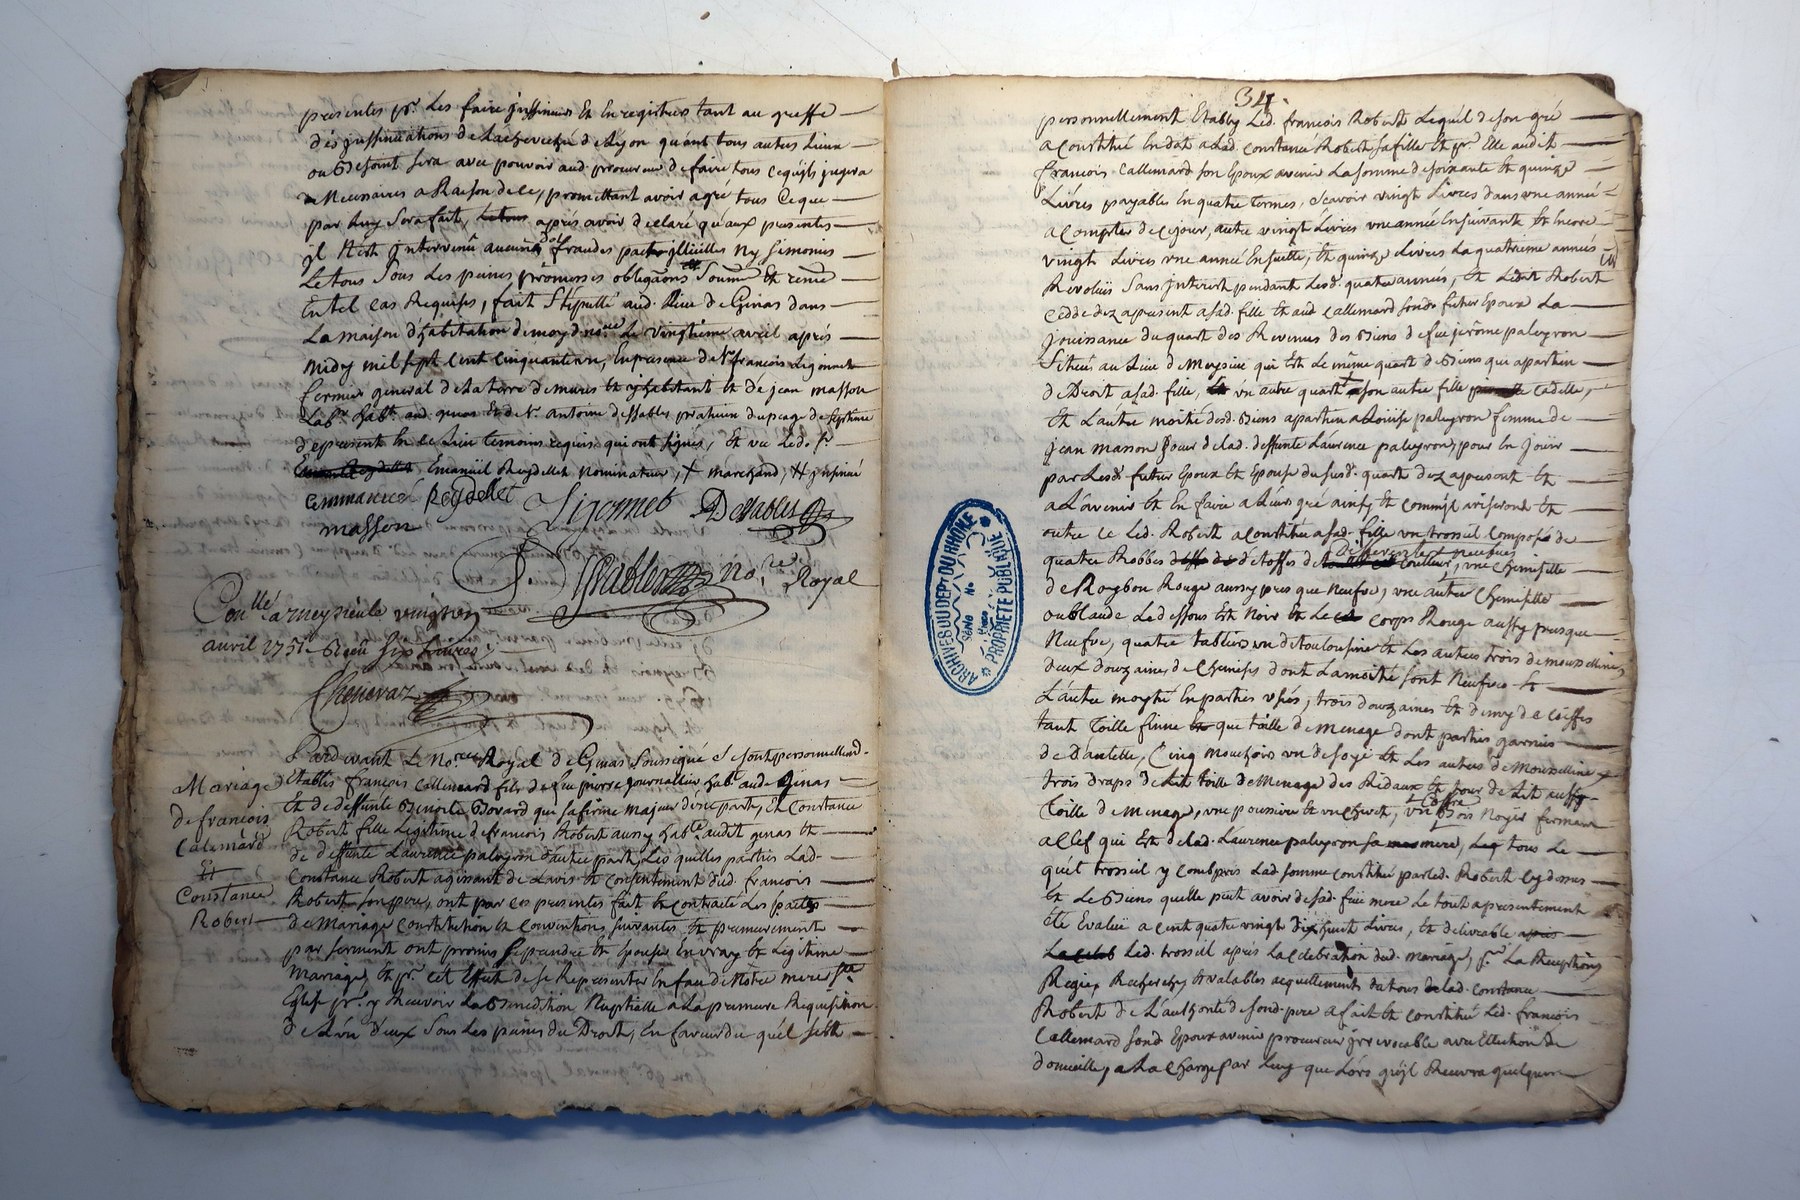 presentes pr. les faire jnssinuer Et Enregistrer tant au greffe
des jnssinuations de Larchevêché de Lÿon qu'ant tous autres Lieux
ou Besoint sera avec pouvoir aud. procureur de faire tous cequ'jl jugera
Necessaires a Raison de ce, promettant avoir agré tous Ceque
par luy sera fait, aprés avoir declaré qu'aux presentes
jl N'est Intervenû aucune fraudes pactes jllicittes Ny simonies
Letous sous Les peines promesses obligaõns
Entel cas Requises, fait Stipullé aud. Lieu de Genas dans
La maison d'habitation de moyd. nore. Le vingtième avril aprés
midy mil sept Cent Cinquanteun, En presence de Sr. françois Ligonnet
fermier general de La terre de mures Et y habitant Et de jean masson
Labr. habt. aud. genas Et de Sr. antoine dessables praticien
de present En ce Lieu temoins requis qui ont signés, Et vec Led. Sr.
Emanüel Reydellet nominateur, + marchand, jnssinué
emmanuel Reydellet Ligonnet ADessables
masson
Dessables Nore. Royal
Conllé a meyzieule vuingtun
avril 1751 Receu six Livres
Chenevaz
Pardevant Le Nore. Royal de Genas soussigné se sont personnellemt.
Etablis françois Callemard fils de feu pierre journallier habt. aud. Genas
Et de deffunte Benoite Bovard que safirme majeur d'une part, Et Constance
Robert fille Legitime de françois Robert aussy habte. audit genas Et
de deffunte Laurence paleyron d'autre part, Les quelles parties Lad.
Constance Robert agissant de L'avis Et consentement dud. françois
Robert son pere, ont par ces presentes fait Et contracté Les pactes
de Mariage Constitution Et Convention suivantes Et premierement
par serment ont promis se prendre Et Epouser En vray Et Legitime
Mariage, Et pr. cet Effet de se Representer En face de Notre mere Ste.
Eglise pr. y Recevoir La Benediction Nuptialle a La premiere Requisition
de L'un d'eux sous Les peines du Droit, En faveur du quel sest
Mariage
de françois
Calemard
Et
Constance
Robert
34.
personnellement Etably Led. francois Robert Lequel de son gré
a constitué En dot a Lad. Constance Robert sa fille Et pr. Elle audit
francois Callemard son Epoux avenir La somme de soixante Et quinze
Livres payables En quatre termes, scavoir vingt Livres dans une année
a Compter de ce jour, autre vingt Livres une année Ensuivante Et Encore
vingt Livres une année Ensuitte, Et quinze Livres La quatrieme année
Revoluë sans jnterest pendant Lesd. quatre années, Et Ledit Robert
cedde dez apresent asad. fille Et aud. Callemard sond. futur Epoux La
jouissance du quart des Revenus des Biens de feu jerôme paleyron
scitué, au Lieu de Meyzieu qui Est Le même quart de Biens qui appartien
de Droit asad. fille, un autre quart a son autre fille Cadette,
Et L'autre moitié desd. Biens appartien a Loüise paleyron femme de
jean Masson sœur de Lad. deffunte Laurence paleyron, pour En jouir
par Lesds. futur Epoux Et Epouse du susd. quart dez apresent Et
a L'avenir Et En faire a Leurs gré ainsy Et comm'jl aviseront Et
outre ce Led. Robert a constitué asad. fille un trosseil Composé de
quatre Robbes d'étoffes de differentes couleur presque neufves, une Chemisette
de Roybon Rouge aussy presque Neufve, une autre Chemisette
oublande Le dessous Est Noir Et Le corps Rouge aussy presque
Neufve, quatre tabliers un de toulousine Et Les autres trois de mousselline,
deux douzaines de Chemises dont La moitié sont Neufves Et
L'autre moytié En parties usés, trois douzaines Et demy de Coiffes
tant Toille finne que toille de Menage dont parties garnies
de Dantelle, Cinq Mouchoirs un de soye Et Les autres de Mousselline
trois draps de Lit toille de Menage des Ridaux Et tour de Lit aussy
Toille de Menage, une poussiere Et un Chevet, un Coffre Bois Noyer fermant
a Clef qui Est de Lad. Laurence paleyron sa mere, tous Le
quel trosseil y Compris Lad. somme constitué par Led. Robert cy dessus
Et Le Biens quelle peut avoir de sad. feüe mere Le tout a presentement
Eté Evalué a Cent quatre vingt dixhuit Livres, Et delivrable
Led. trosseil aprés La Celebration dud. Mariage, pr. La Receptions
Regie, Recherches Et valables acquittement du tous Lad. Constance
Robert de L'authorité de sond. pere a fait Et Constitué Led. francois
Callemard sond. Epoux avenir procureur jrrevocable avec Ellection de
domicille, a La Charge par Luy que Lors qu'jl Recevra quelques
ARCHIVES DU DEPT DU RHÔNE
PROPRIÉTÉ PUBLIQUE